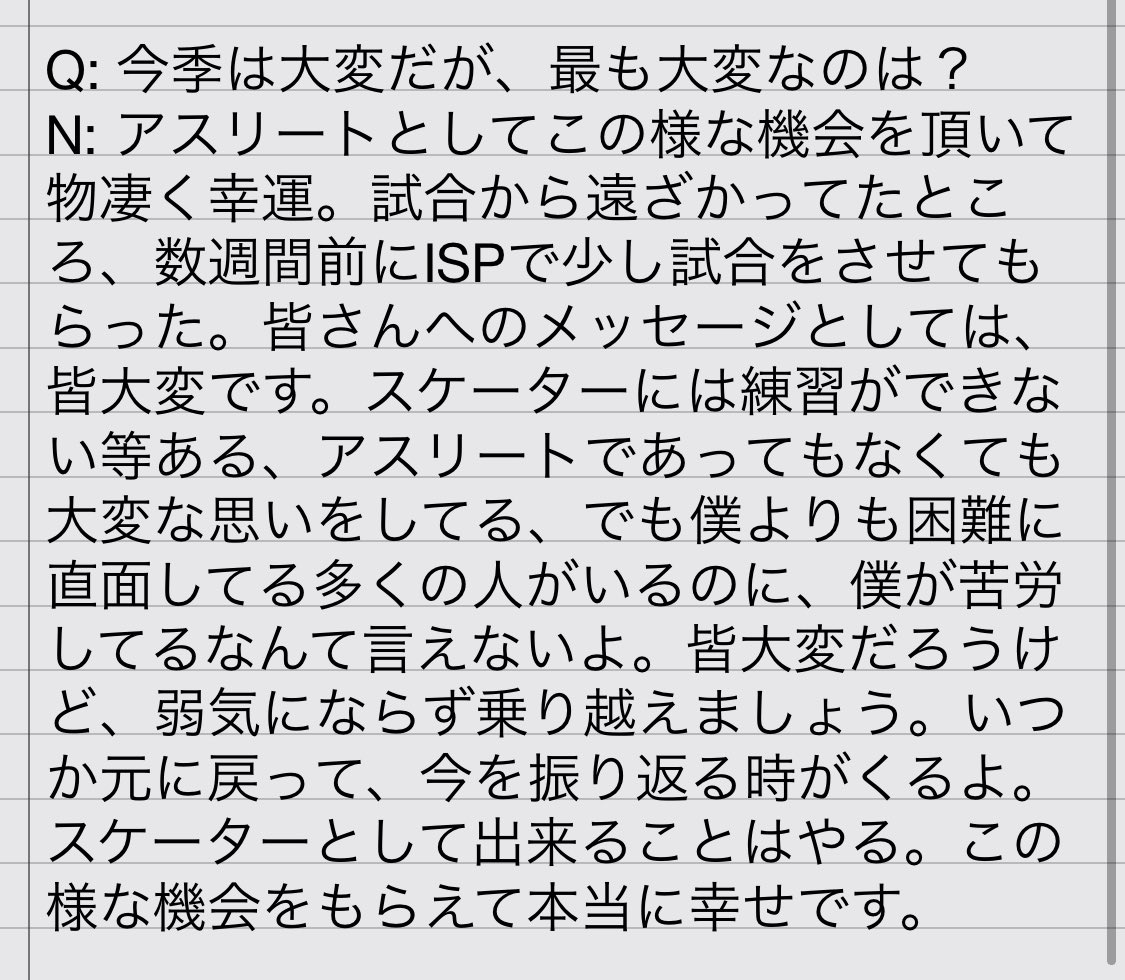 Q: 今季は大変だが、最も大変なのは？
N: アスリートとしてこの様な機会を頂いて
物凄く幸運。試合から遠ざかってたとこ
ろ、数週間前にISPで少し試合をさせても
らった。皆さんへのメッセージとしては、
皆大変です。スケーターには練習ができな
い等ある、アスリートであってもなくても
大変な思いをしてる、でも僕よりも困難に
直面してる多くの人がいるのに、僕が苦労
してるなんて言えないよ。皆大変だろうけ
ど、弱気にならず乗り越えましょう。いつ
か元に戻って、今を振り返る時がくるよ。
スケーターとして出来ることはやる。この
様な機会をもらえて本当に幸せです。